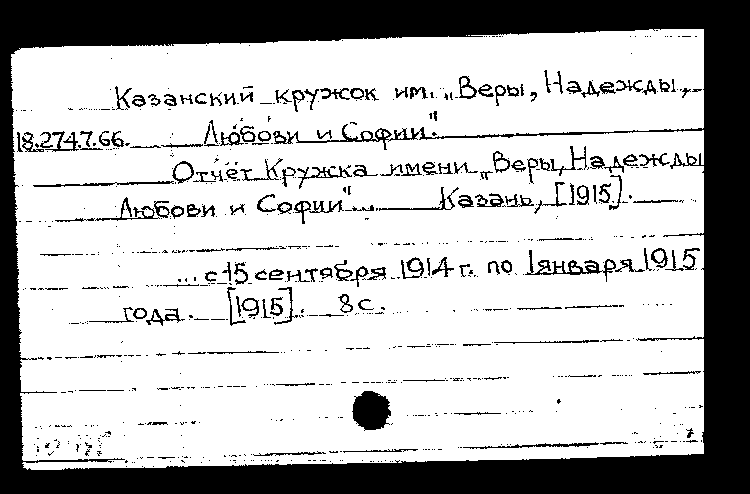 Казанский кружок им. „Веры, Надежды,
18.274.7.66. Любови и Софии".
Отчёт Кружка имени „Веры, Надежды
Любови и Софии"... Казань, [1915].
... с 15 сентября 1914 г. по 1 января 1915
года. [1915]. 8 с.